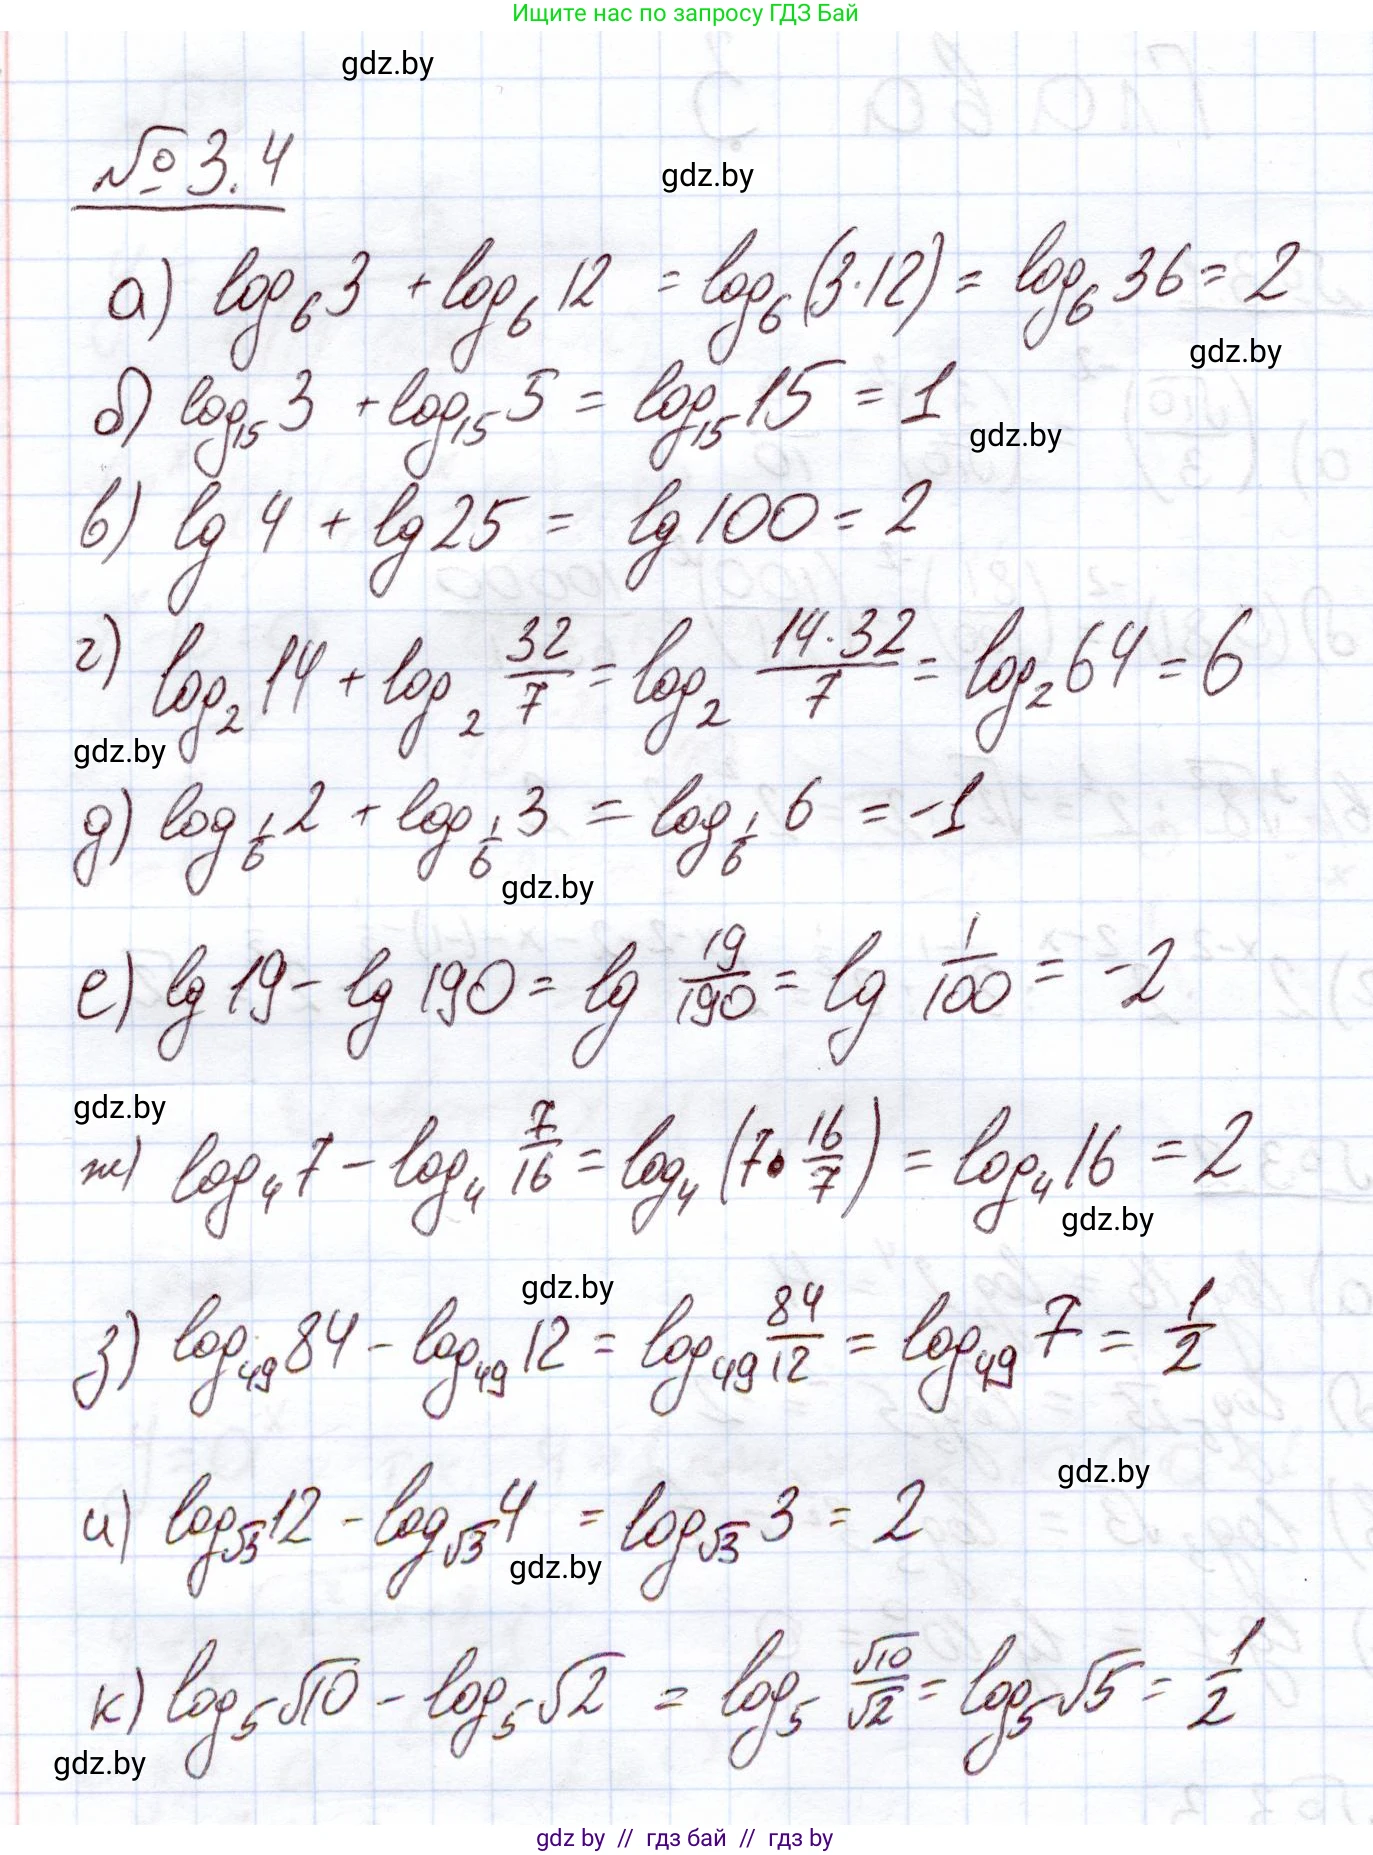 Ищите нас по запросу ГДЗ Бай
gdz.by
№ 3.4
gdz.by
а) log₆ 3 + log₆ 12 = log₆ (3·12) = log₆ 36 = 2
gdz.by
б) log₁₅ 3 + log₁₅ 5 = log₁₅ 15 = 1
gdz.by
в) lg 4 + lg 25 = lg 100 = 2
г) log₂ 14 + log₂ 32/7 = log₂ 14·32/7 = log₂ 64 = 6
gdz.by
д) log_1/6 2 + log_1/6 3 = log_1/6 6 = -1
gdz.by
е) lg 19 - lg 190 = lg 19/190 = lg 1/100 = -2
gdz.by
ж) log₄ 7 - log₄ 7/16 = log₄ (7·16/7) = log₄ 16 = 2
gdz.by
gdz.by
з) log₄₉ 84 - log₄₉ 12 = log₄₉ 84/12 = log₄₉ 7 = 1/2
gdz.by
и) log_√3 12 - log_√3 4 = log_√3 3 = 2
gdz.by
к) log₅ √10 - log₅ √2 = log₅ √10/√2 = log₅ √5 = 1/2
gdz.by
gdz by // гдз бай // gdz by